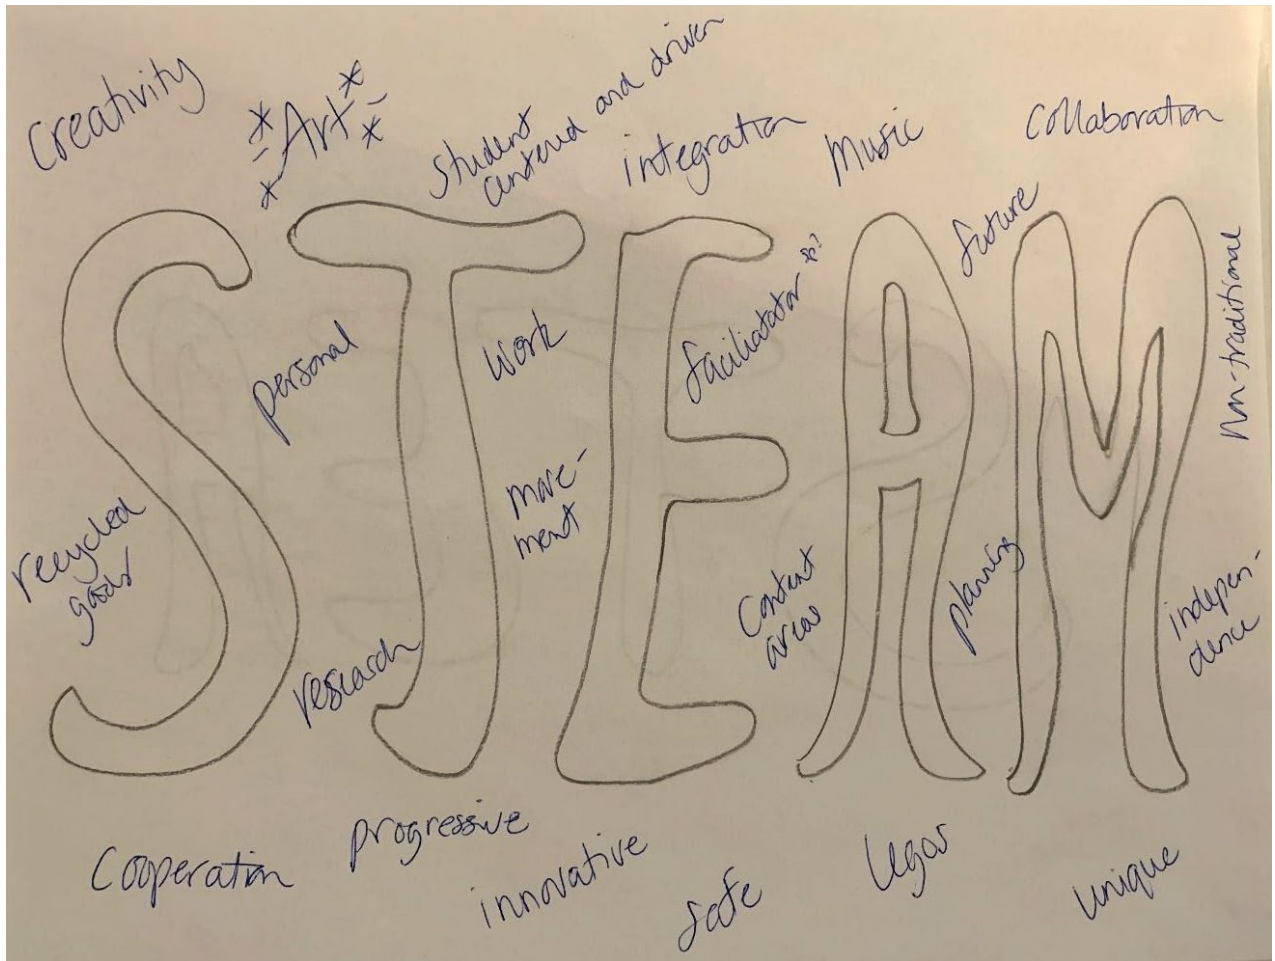 Creativity
Art
Student
centered and driven
integration
Music
Collaboration
future
Non-traditional
STEAM
personal
work
move-
ment
recycled
goods
research
Content
areas
planning
indepen-
dence
Cooperation
progressive
innovative
safe
Legos
Unique